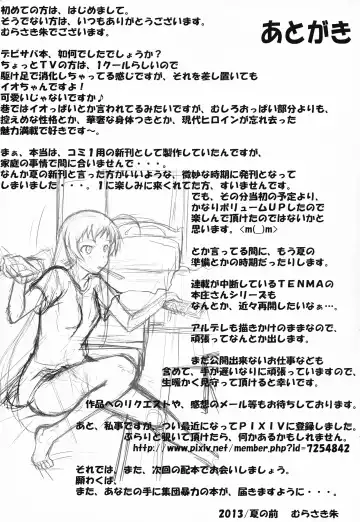 あとがき
初めての方は、はじめまして。
そうでない方は、いつもありがとうございます。
むらさき朱でございます。
デビサバ本、如何でしたでしょうか？
ちょっとTVの方は、1クールらしいので
駆け足で消化しちゃってる感じですが、それを差し置いても
イオちゃんですよ！
可愛いじゃないですか♪
巷ではイオっぱいとか言われてるみたいですが、むしろおっぱい部分よりも、
控えめな性格とか、華奢な身体つきとか、現代ヒロインが忘れ去った
魅力満載で好きです～。
まぁ、本当は、コミ1用の新刊として製作していたんですが、
家庭の事情で間に合いませんで・・・。
なんか夏の新刊と言った方がいいような、微妙な時期に発刊となって
しまいました・・・。1に楽しみに来くれてた方、すいませんです。
でも、その分当初の予定より、
かなりボリュームUPしたので
楽しんで頂けたのではないかと
思います。<m(__)m>
とか言ってる間に、もう夏の
準備とかの時期だったりします。
連載が中断しているTENMAの
本庄さんシリーズも
なんとか、近々再開したいなぁ…。
アルデレも描きかけのままなので、
頑張ってなんとか出します。
まだ公開出来ないお仕事なども
含めて、手が遅いなりに頑張っていますので、
生暖かく見守って頂けると幸いです。
作品へのリクエストや、感想のメール等もお待ちしております。
あと、私事ですが、つい最近になってPIXIVに登録しました。
ぶらりと覗いて頂けたら、何かあるかもしれません。
http://www.pixiv.net/member.php?id=7254842
それでは、また、次回の配本でお会いしましょう。
願わくば、
また、あなたの手に集団暴力の本が、届きますように・・・。
2013/夏の前　むらさき朱